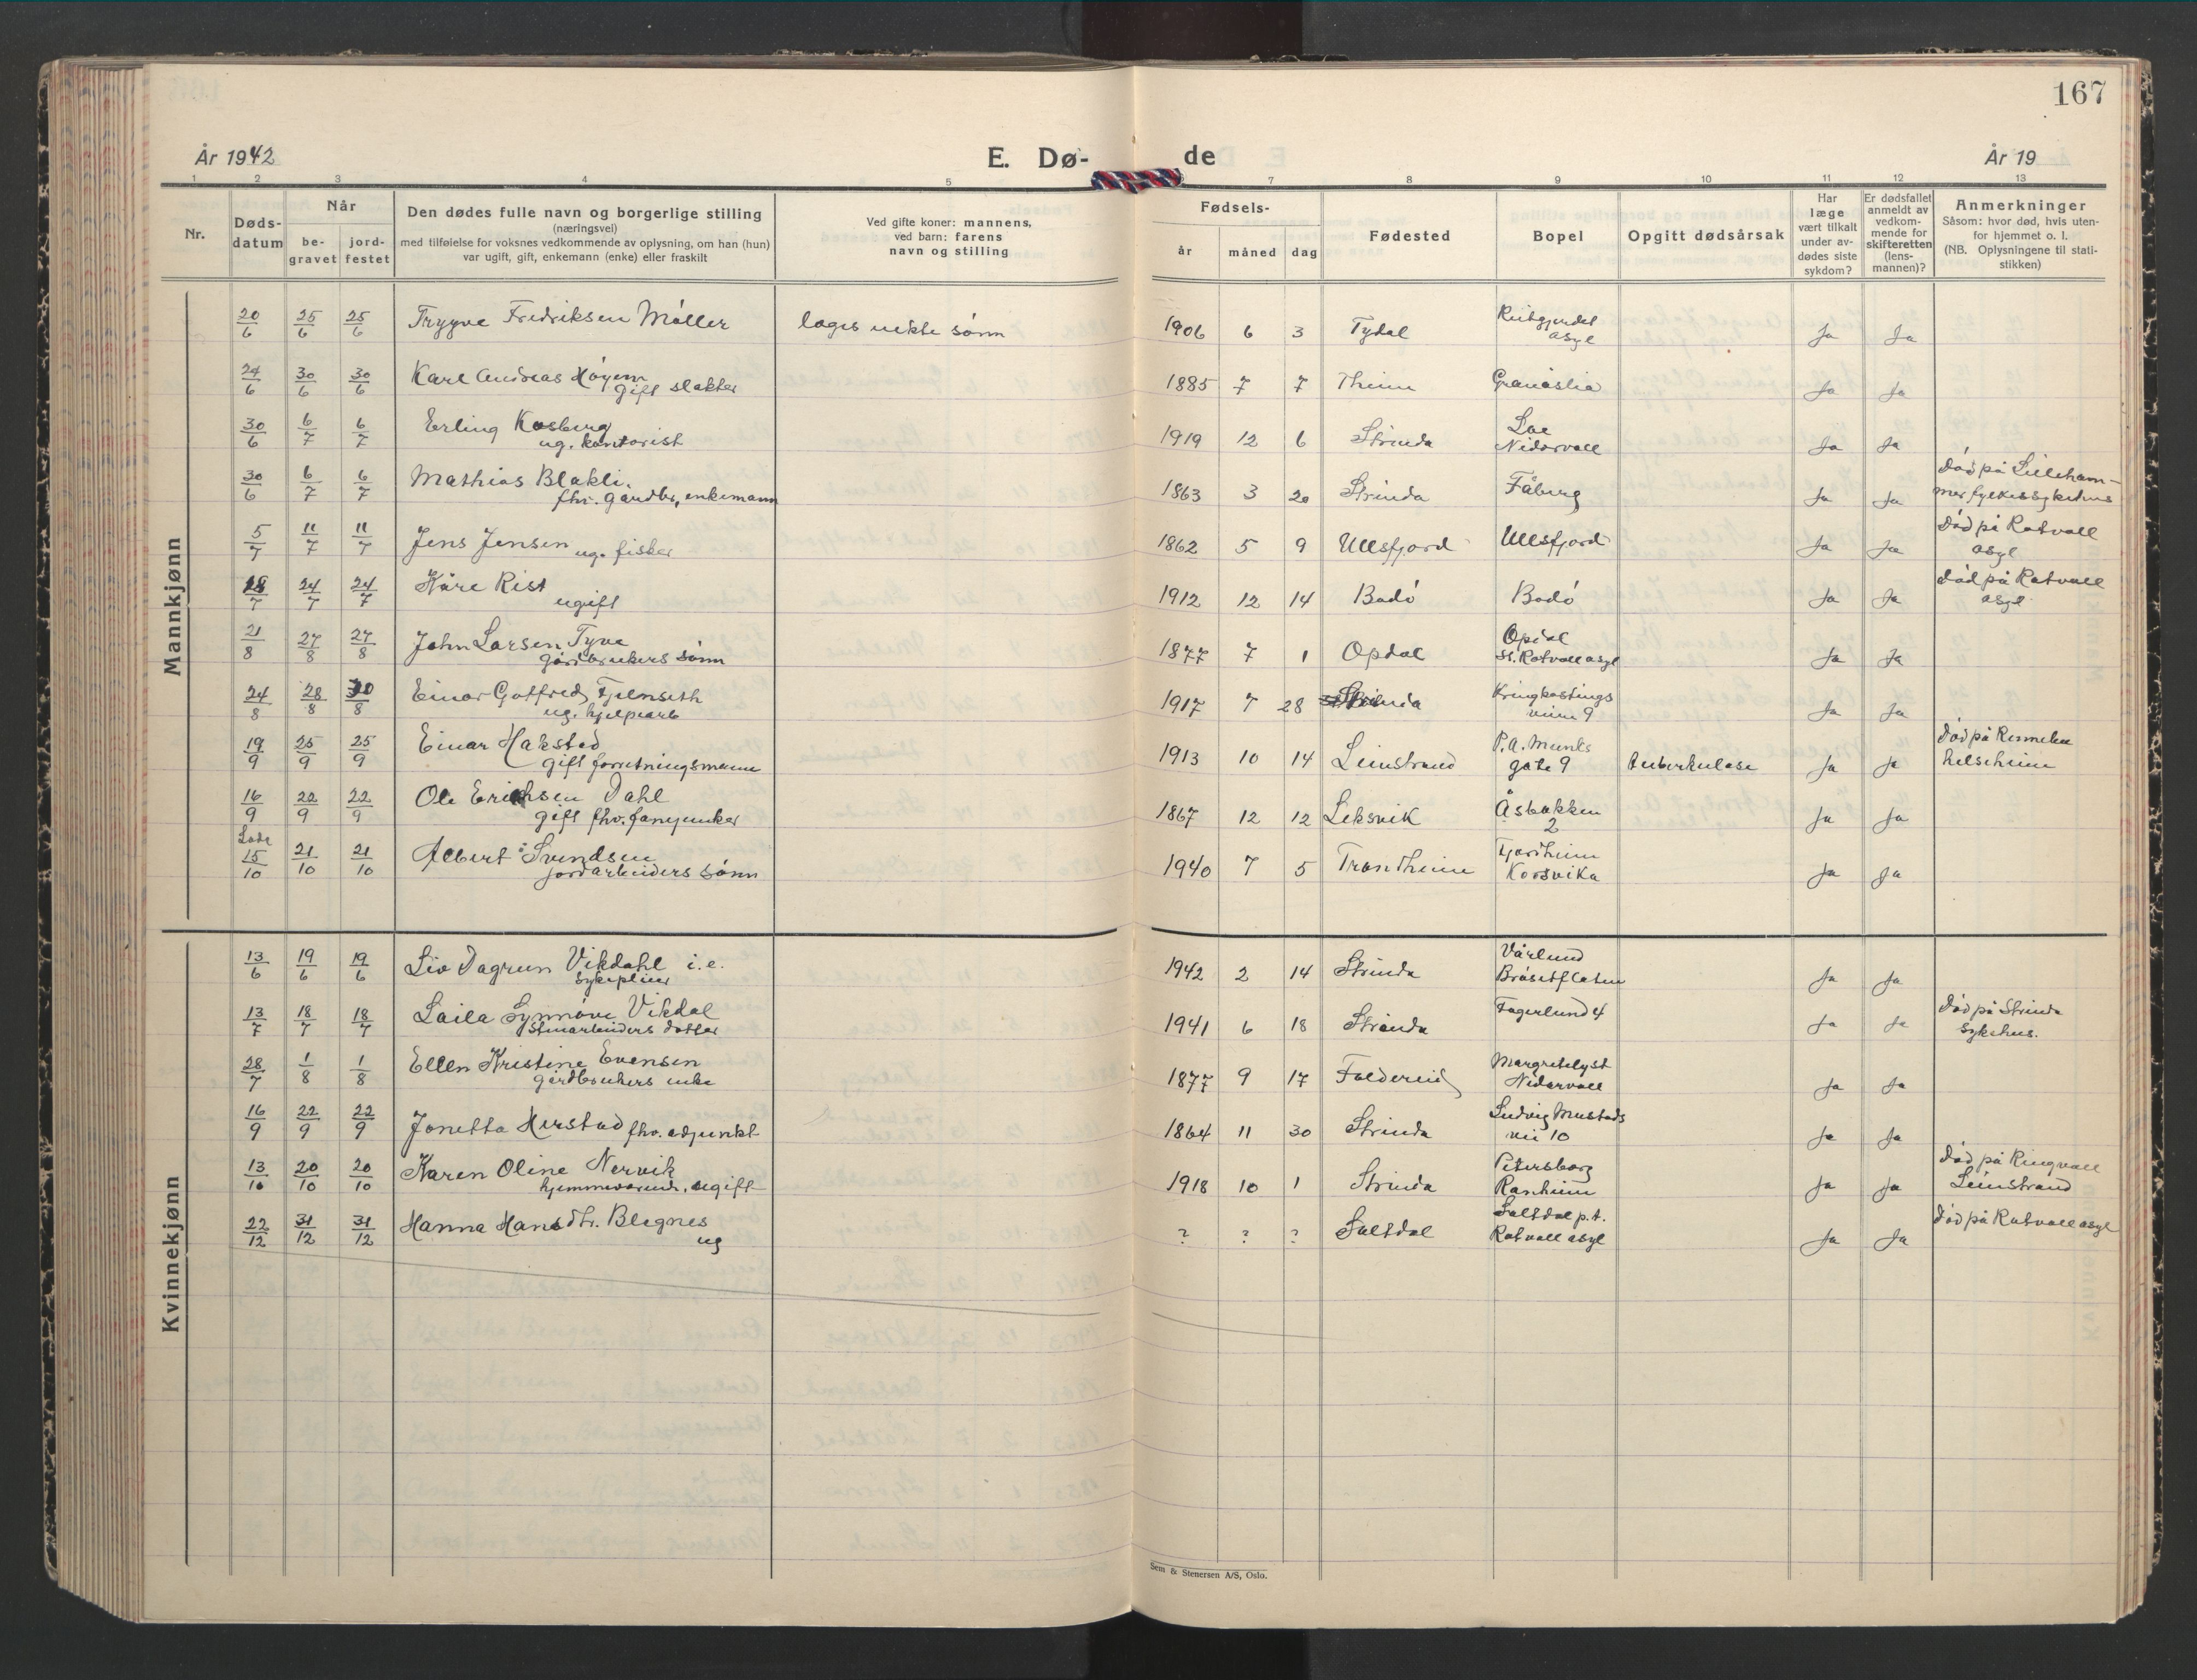 167
År 1942
E. Dø-
de
År 19
1 2 3 4 5 7 8 9 10 11 12 13
Nr.
Døds-
datum
Når
be-
gravet
jord-
festet
Den dødes fulle navn og borgerlige stilling
(næringsvei)
med tilføielse for voksnes vedkommende av oplysning, om han (hun)
var ugift, gift, enkemann (enke) eller fraskilt
Ved gifte koner: mannens,
ved barn: farens
navn og stilling
Fødsels-
år
måned
dag
Fødested
Bopel
Opgitt dødsårsak
Har
læge
vært tilkalt
under av-
dødes siste
sykdom?
Er dødsfallet
anmeldt av
vedkom-
mende for
skifteretten
(lens-
mannen)?
Anmerkninger
Såsom: hvor død, hvis uten-
for hjemmet o. l.
(NB. Oplysningene til stati-
stikken)
Mannkjønn
20/6 25/6 25/6 Trygve Fredriksen Møller læges sønn 1906 6 3 Tydal Reitgjerdet
asyl Ja Ja
24/6 30/6 30/6 Karl Andreas Høyem 1885 7 7 Th.eim Granåslia Ja Ja
gift slakter
30/6 6/7 6/7 Erling Kosberg 1919 12 6 Strinda Loe
ug. kontorist Nidarvoll Ja Ja
30/6 6/7 6/7 Mathias Blakli. 1863 3 20 Strinda Fåberg Ja Ja Død på Lilleham-
fhv. gårdbr, enkemann mer fylkessykehus
5/7 11/7 11/7 Jens Jensen ug. fisker 1862 5 9 Ullsfjord Ullsfjord Ja Ja Død på Rotvoll
asyl
18/7 24/7 24/7 Kåre Rist 1912 12 14 Bodø Bodø Ja Ja Død på Rotvoll
ugift asyl
21/8 27/8 27/8 John Larsen Tyve 1877 7 1 Opdal Opdal
gårdbrukers sønn st. Rotvoll asyl Ja Ja
24/8 28/8 30/8 Einar Gotfred Fjelnseth 1917 7 28 Strinda Kringkastings
ug. hjelpearb veien 9 Ja Ja
19/9 25/9 25/9 Einar Hakstad 1913 10 14 Leinstrand P.A. Munks
gift forretningsmann gate 9 tuberkulose Ja Ja Død på
helseheim
16/9 22/9 22/9 Ole Erichsen Dahl 1867 12 12 Leksvik Åsbakken
gift fhv. fanejunker 2 Ja Ja
Lade
15/10 21/10 21/10 Albert Svendsen 1940 7 5 Trondheim Fjordheim
jordarbeiders sønn Korsvika Ja Ja
Kvinnekjønn
13/6 19/6 19/6 Liv Dagrun Vikdahl i.e. 1942 2 14 Strinda Vårlund
sykepleier Brøsetflaten Ja Ja
13/7 18/7 18/7 Laila Synnøve Vikdal 1941 6 18 Strinda Fagerlund 4 Ja Ja Død på Strinda
stenarbeiders datter sykehus.
28/7 1/8 1/8 Ellen Kristine Evensen 1877 9 17 Foldereid Margretelyst
gårdbrukers enke Nidarvoll Ja Ja
16/9 22/9 22/9 Jonetta Herstad fhv. adjunkt 1864 11 30 Strinda Ludvig Mustads
vei 10 Ja Ja
13/10 20/10 20/10 Karen Oline Nervik 1918 10 1 Strinda Petersborg
hjemmeværende, ugift Ranheim Ja Ja Død på Ringvoll
Leinstrand
22/12 31/12 31/12 Hanna Hansdtr. Blegnes ? ? ? Saltdal Saltdal p.t.
ug Rotvoll asyl Ja Ja Død på Rotvoll asyl
Sem & Stenersen A/S, Oslo.